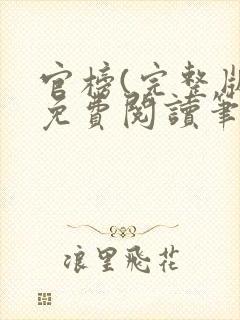 官榜(完整版
免費閱讀筆
浪里飛花